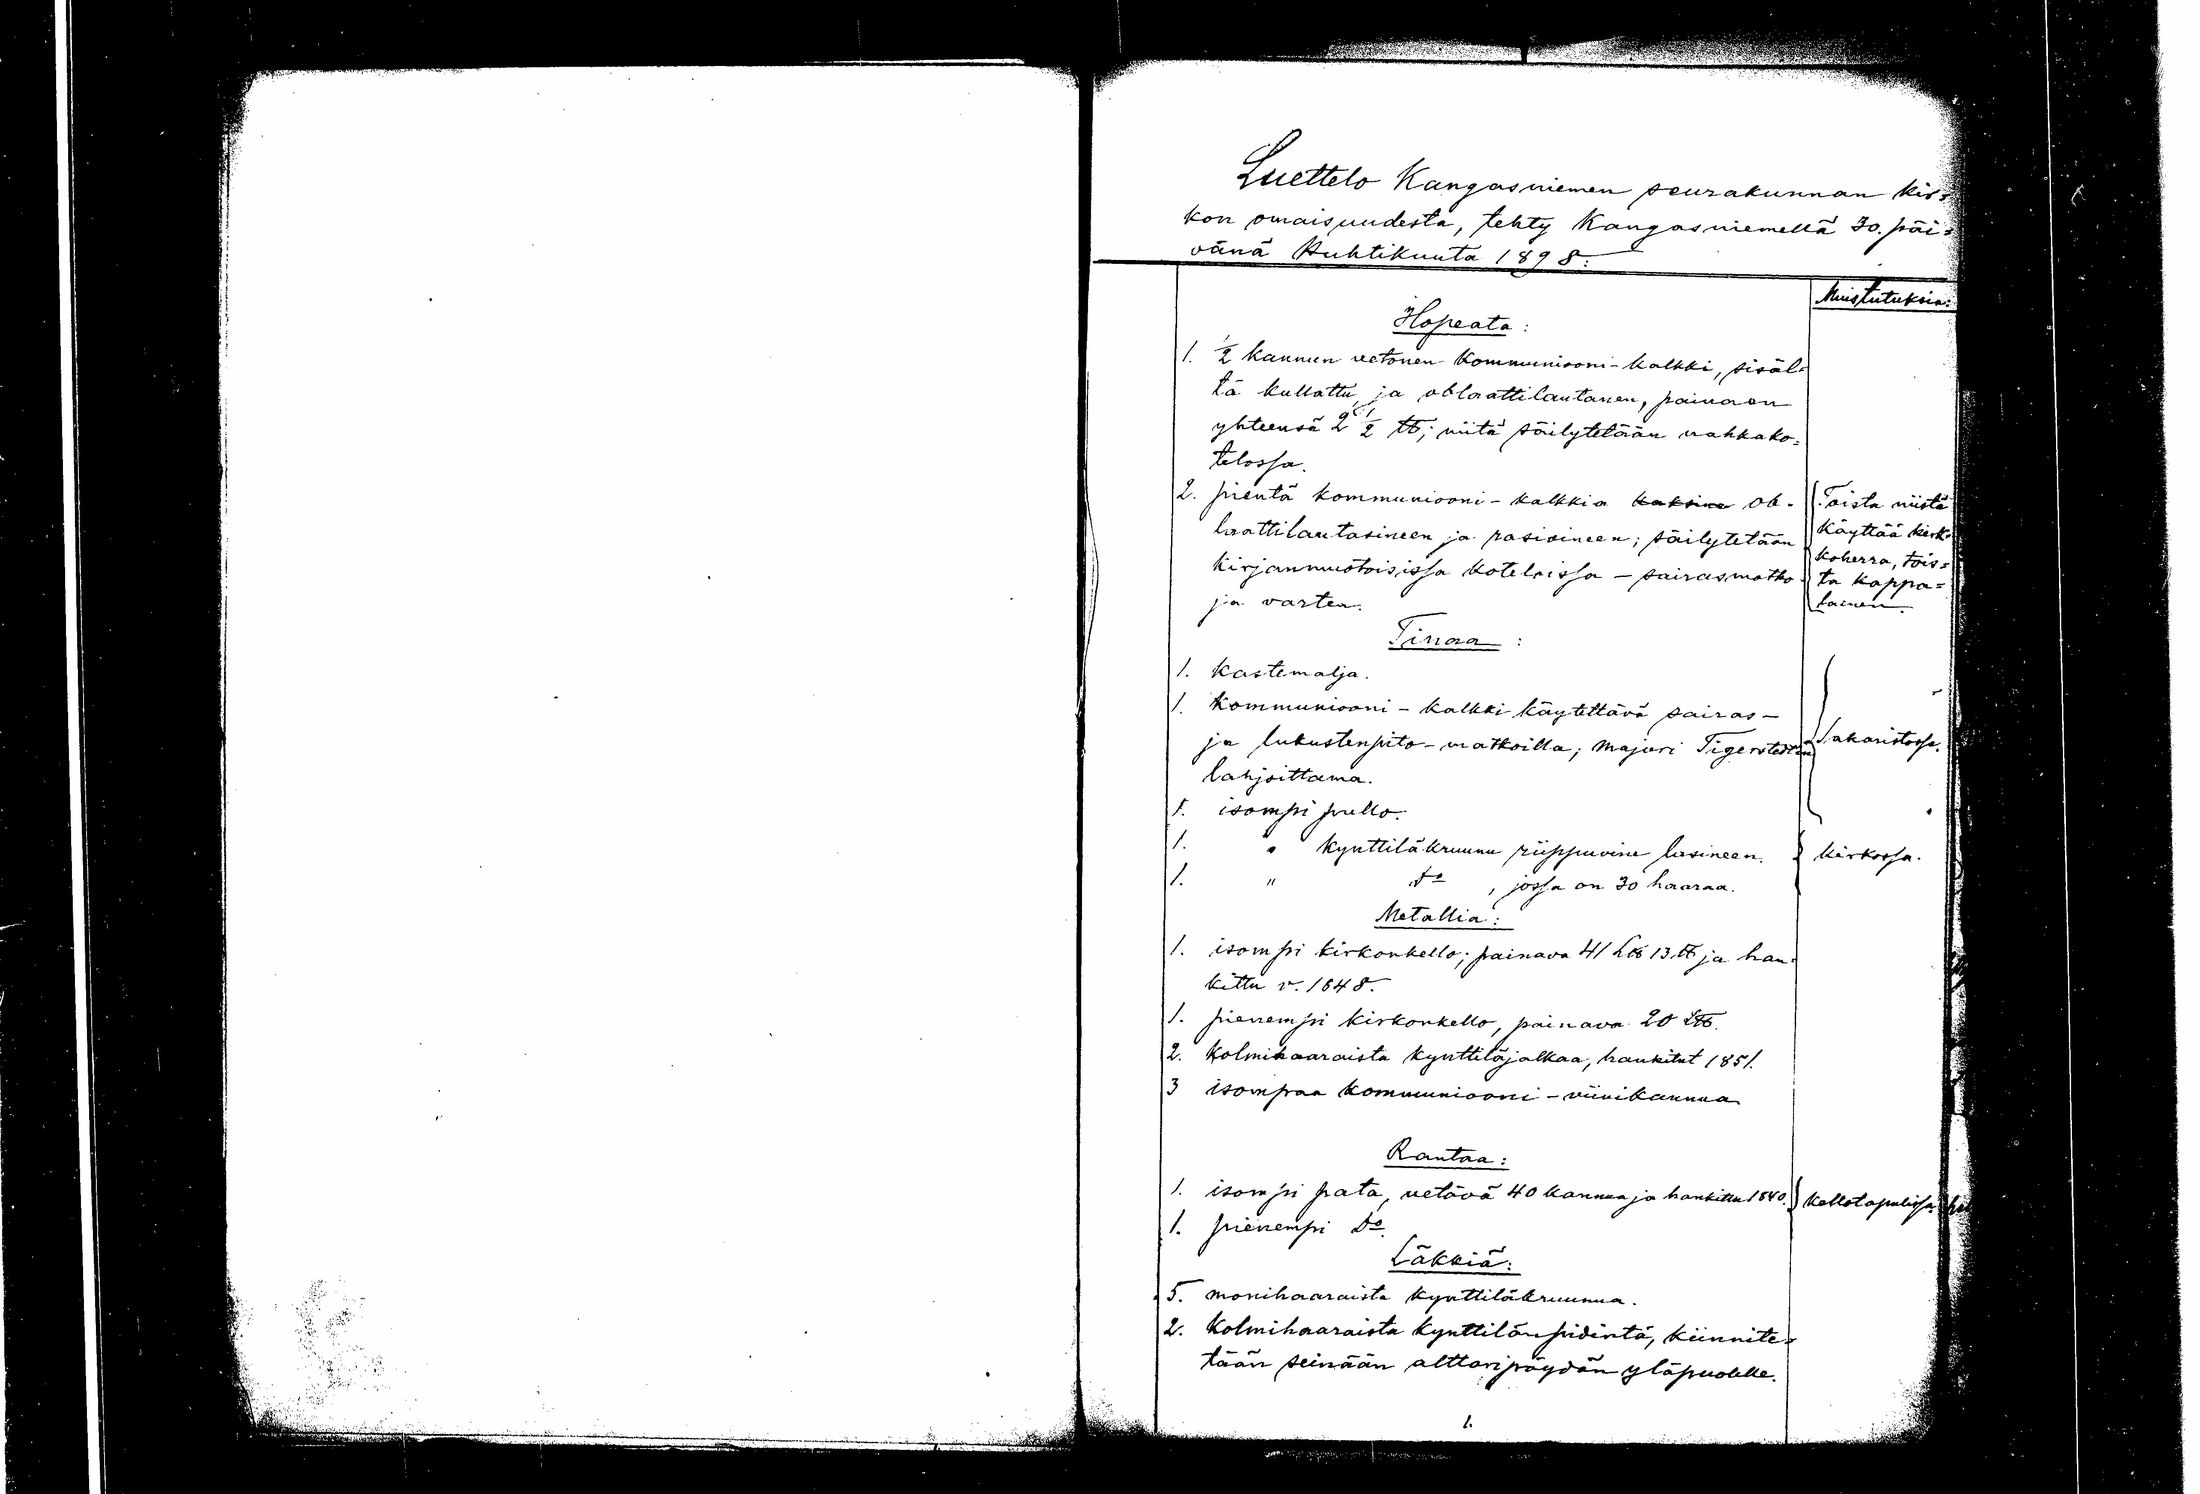 Luettelo Kangasniemen seurakunnan kir=
kon omaisuudesta, tehty Kangasniemellä 30. päi=
vänä Huhtikuuta 1898.
Muistutuksia:
Hopeata:
1. 1/2 kannun vetonen kommuniooni-kalkki, sisäl=
tä kullattu, ja oblaattilautanen, painaen
yhteensä 2 1/2 ℔; niitä säilytetään nahkako=
telossa.
2. pientä kommuniooni-kalkkia kaksine ob-
laattilautasineen ja rasioineen; säilytetään
kirjanmuotoisissa koteloissa – sairasmatko
ja varten.
Toista niistä
käyttää kirk=
koherra, tois=
ta kappa=
lainen.
Tinaa:
1. kastemalja.
1. kommuniooni-kalkki käytettävä sairas-
ja lukustenpito-matkoilla; majuri Tigerstedtin
lahjoittama.
Sakaristossa.
1. isompi pullo.
1. " kynttiläkruunu riippuvine lasineen.
kirkossa.
1. " do, jossa on 30 haaraa.
Metallia:
1. isompi kirkonkello; painava 41 L℔ 13 ℔ ja han=
kittu v. 1848.
1. pienempi kirkonkello, painava 20 L℔.
2. kolmihaaraista kynttiläjalkaa, hankitut 1851.
3 isompaa kommuniooni-viinikannua
Rautaa:
1. isompi pata, vetävä 40 kannua ja hankittu 1840.
kellotapulissa
1. pienempi do.
Läkkiä:
5. monihaaraista kynttiläkruunua.
2. kolmihaaraista kynttilänpidintä, kiinnite=
tään seinään alttaripöydän yläpuolelle.
1.